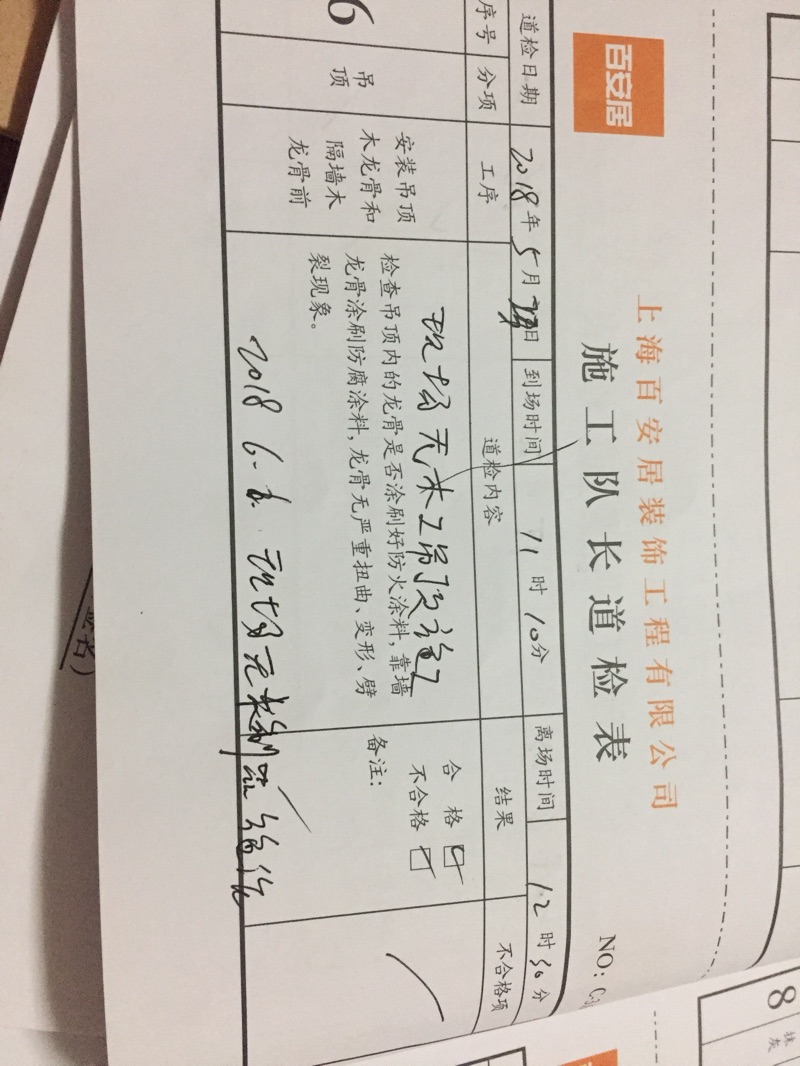 百安居
上海百安居装饰工程有限公司
施工队长道检表
NO:
道检日期 2018年5月 日 到场时间 11时10分 离场时间 12时30分
序号 分项 工序 道检内容 结果 不合格项
6
吊
顶
安装吊顶
木龙骨和
隔墙木
龙骨前
现场无木工吊顶施工
检查吊顶内的龙骨是否涂刷好防火涂料,靠墙
龙骨涂刷防腐涂料,龙骨无严重扭曲、变形、劈
裂现象。
合格
不合格
备注:
2018 6- 现场无木制品
8
抹
灰